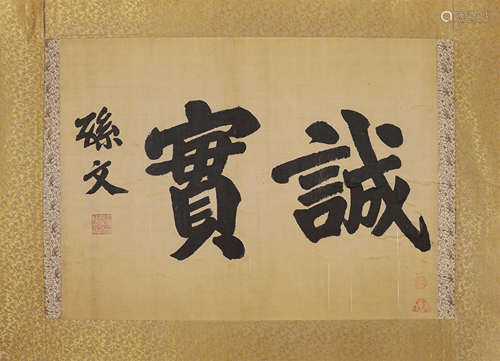 誠實
孫文